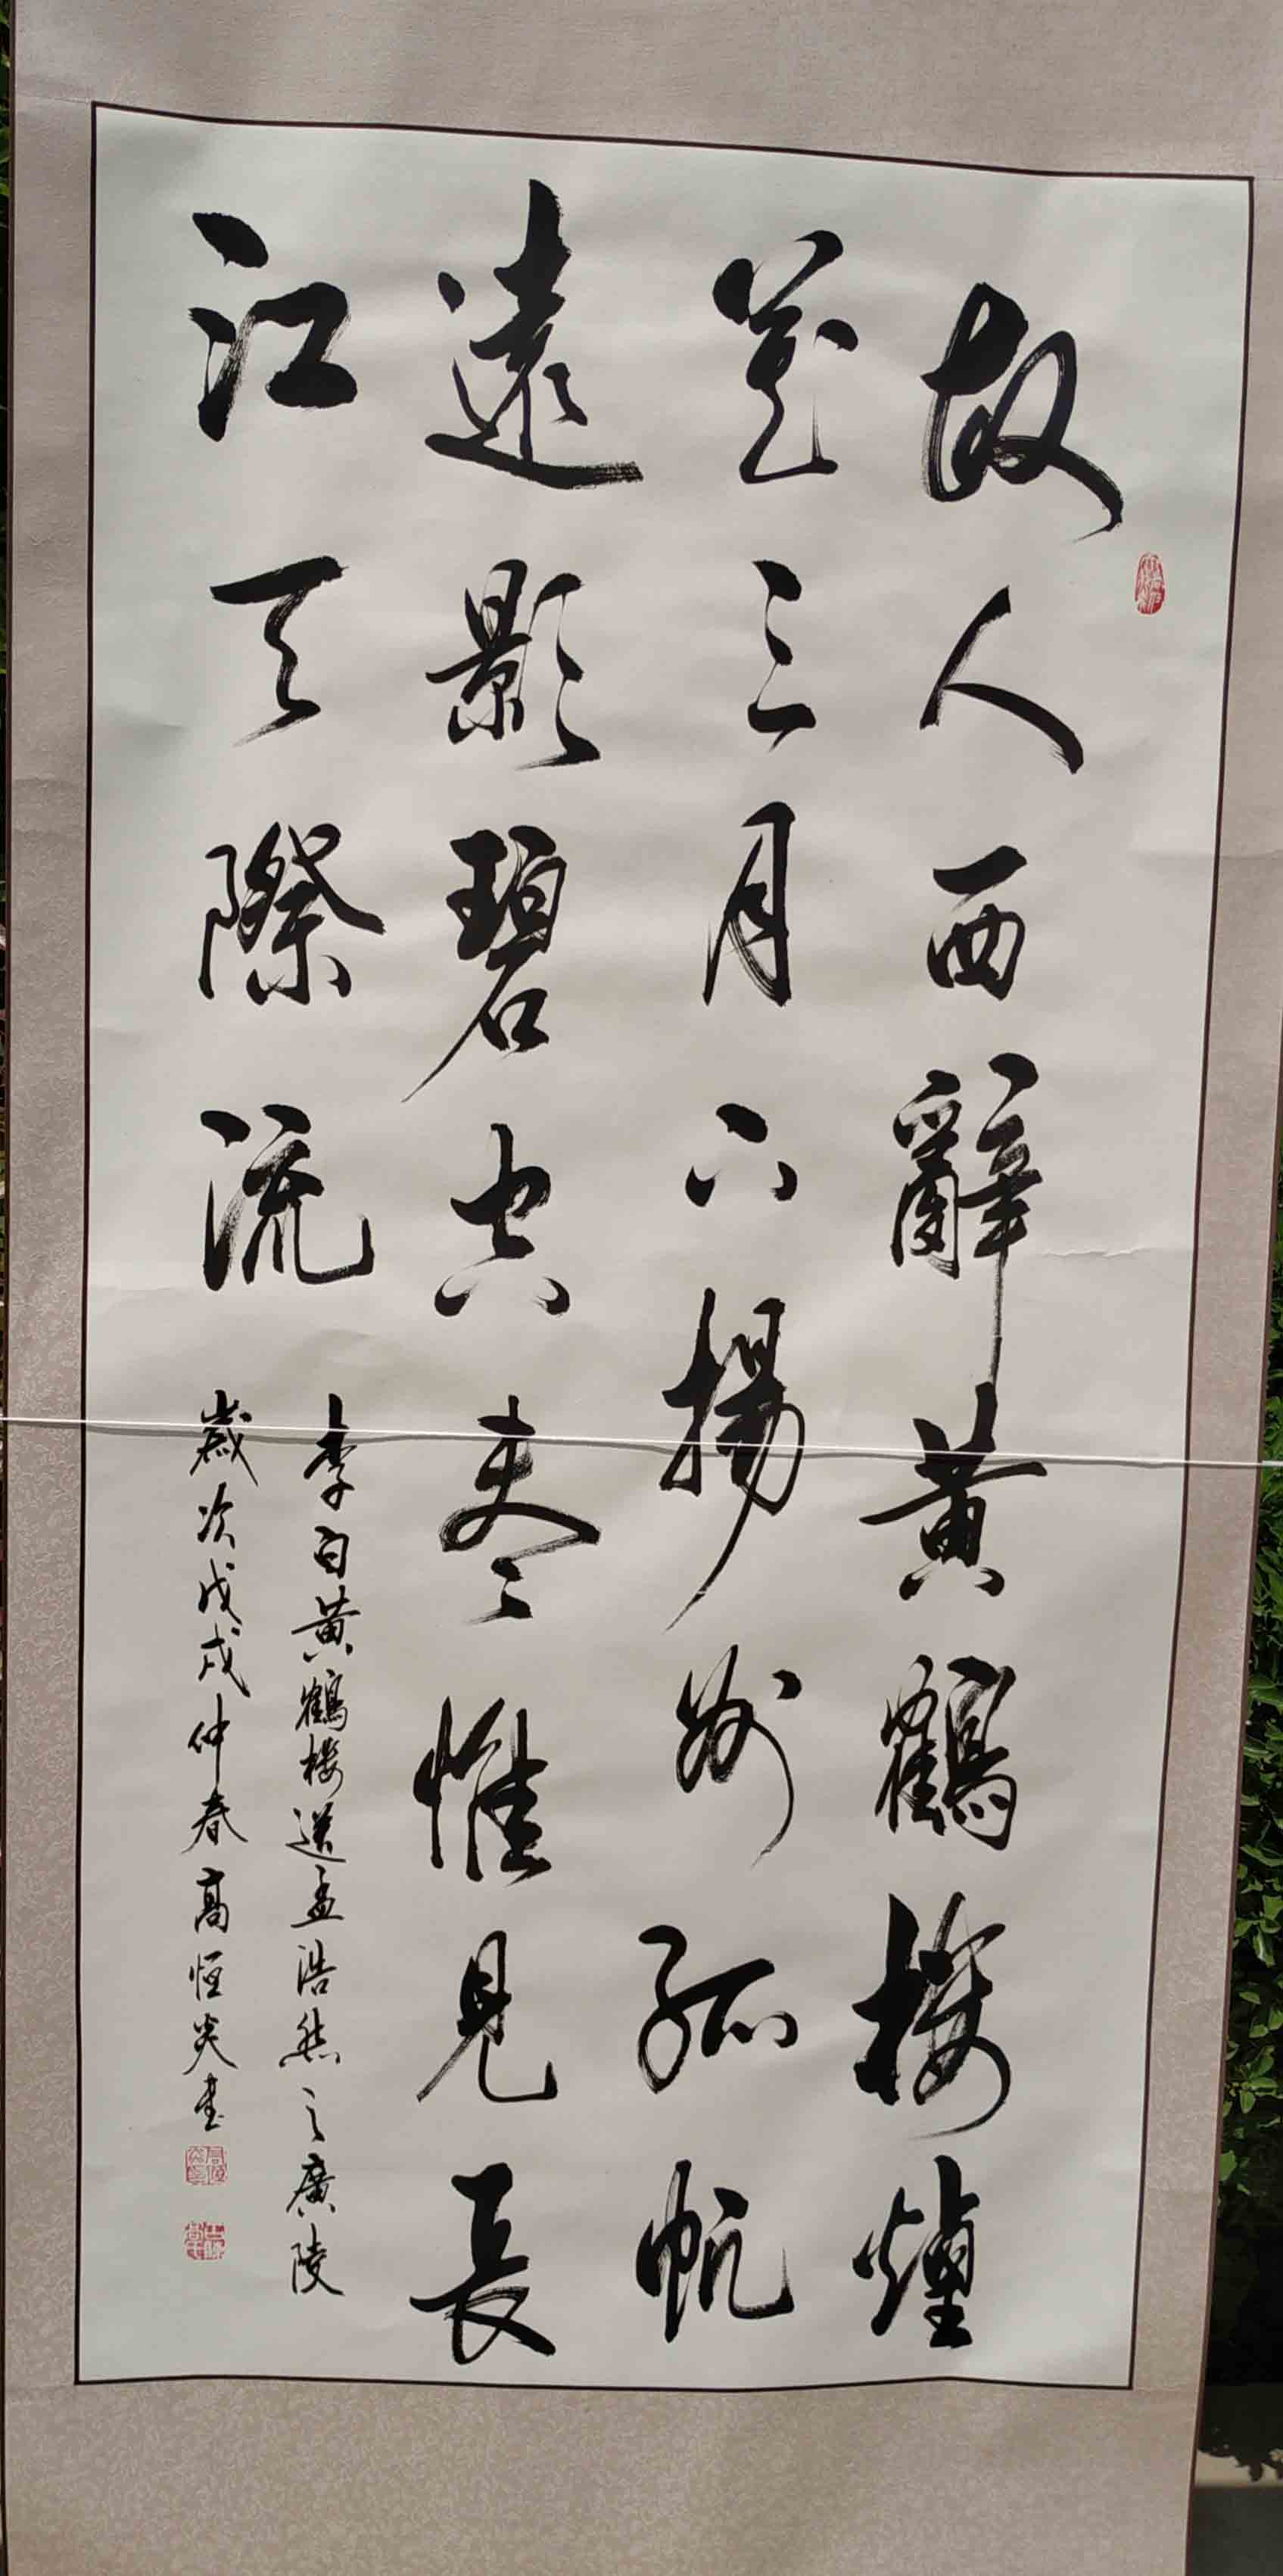 故人西辭黃鶴樓煙
花三月下揚州孤帆
遠影碧空盡惟見長
江天際流
李白黃鶴樓送孟浩然之廣陵
歲次戊戌仲春高恒炎書